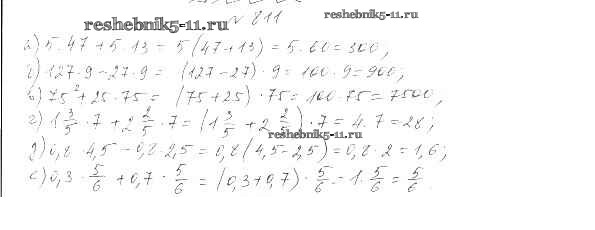 № 811
reshebnik5-11.ru
reshebnik5-11.ru
а) 5·47 + 5·13 = 5(47+13) = 5·60 = 300;
б) 127·9 − 27·9 = (127−27)·9 = 100·9 = 900;
в) 75² + 25·75 = (75+25)·75 = 100·75 = 7500;
г) 1 3/5 · 7 + 2 2/5 · 7 = (1 3/5 + 2 2/5)·7 = 4·7 = 28;
reshebnik5-11.ru
д) 0,8·4,5 − 0,8·2,5 = 0,8(4,5−2,5) = 0,8·2 = 1,6;
е) 0,3·5/6 + 0,7·5/6 = (0,3+0,7)·5/6 = 1·5/6 = 5/6.